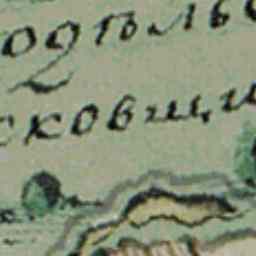 одѣльс
сковщи